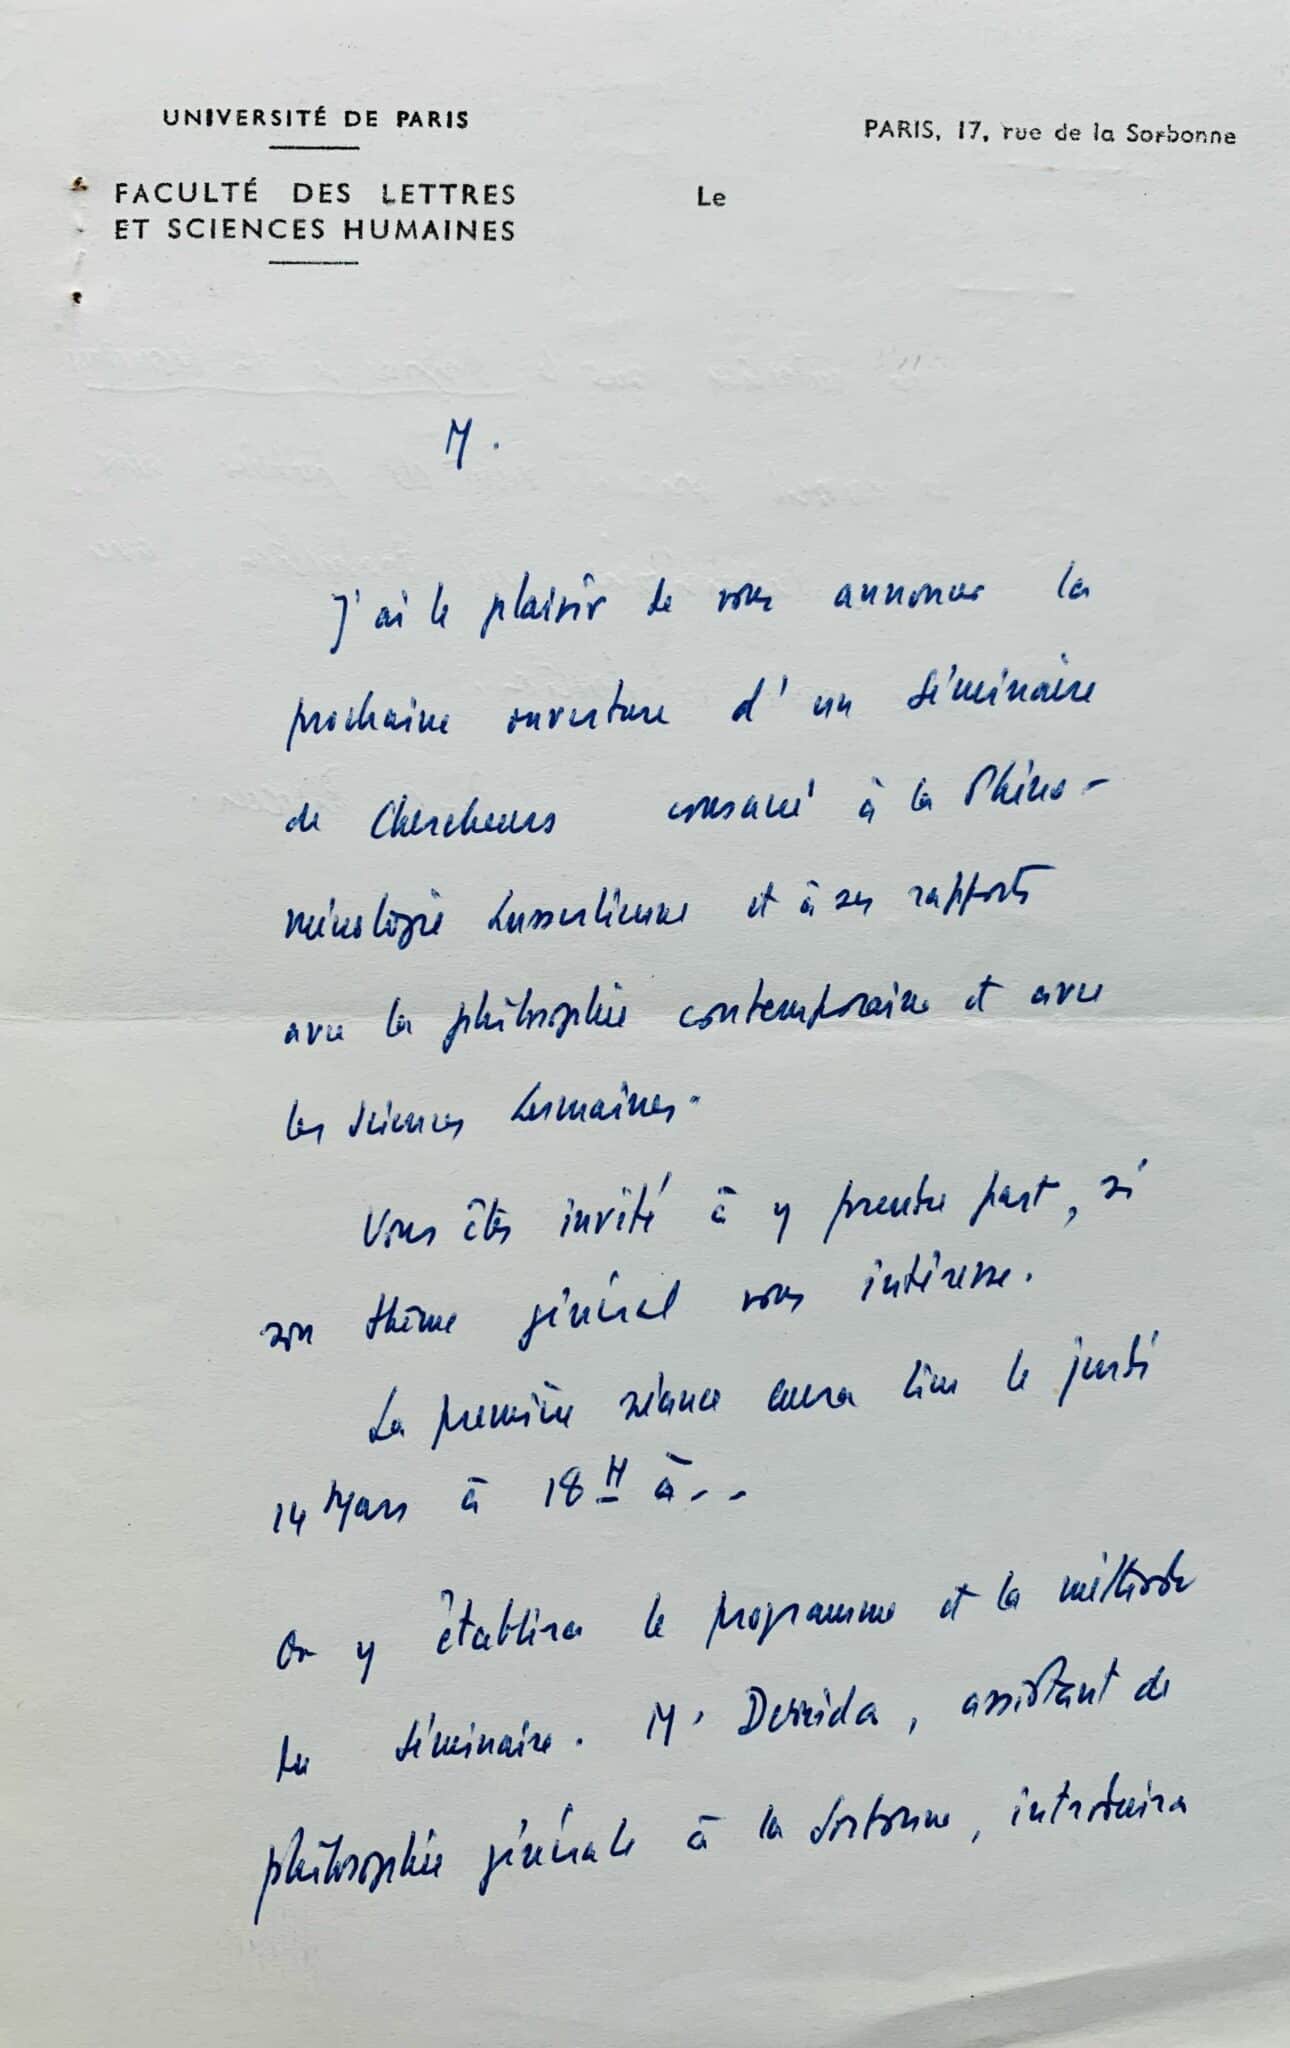 UNIVERSITÉ DE PARIS
PARIS, 17, rue de la Sorbonne
FACULTÉ DES LETTRES
ET SCIENCES HUMAINES
Le
M.
J'ai le plaisir de vous annoncer la
prochaine ouverture d'un séminaire
de Chercheurs consacré à la Phéno-
ménologie husserlienne et à ses rapports
avec la philosophie contemporaine et avec
les sciences humaines.
Vous êtes invité à y prendre part, si
son thème général vous intéresse.
La première séance aura lieu le jeudi
14 Mars à 18H à--
On y établira le programme et la méthode
du séminaire. M. Derrida, assistant de
philosophie générale à la Sorbonne, introduira